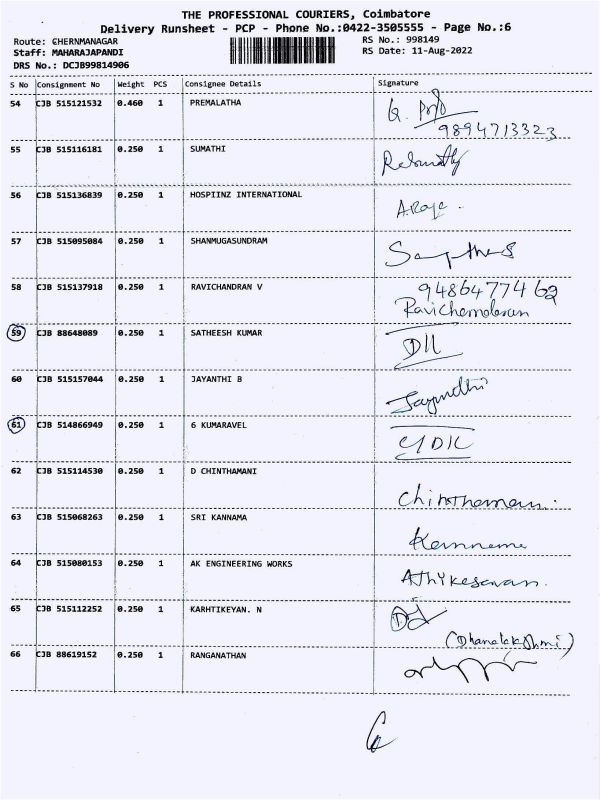 THE PROFESSIONAL COURIERS, Coimbatore
Delivery Runsheet - PCP - Phone No.:0422-3505555 - Page No.:6
Route: CHERNMANAGAR RS No.: 998149
Staff: MAHARAJAPANDI RS Date: 11-Aug-2022
DRS No.: DCJB99814906
S No Consignment No Weight PCS Consignee Details Signature
54 CJB 515121532 0.460 1 PREMALATHA
9894713323
55 CJB 515116181 0.250 1 SUMATHI
56 CJB 515136839 0.250 1 HOSPIINZ INTERNATIONAL
57 CJB 515095084 0.250 1 SHANMUGASUNDRAM
58 CJB 515137918 0.250 1 RAVICHANDRAN V 9486477462
Ravichandran
59 CJB 88648089 0.250 1 SATHEESH KUMAR
60 CJB 515157044 0.250 1 JAYANTHI B
61 CJB 514866949 0.250 1 G KUMARAVEL
62 CJB 515114530 0.250 1 D CHINTHAMANI
63 CJB 515068263 0.250 1 SRI KANNAMA
64 CJB 515080153 0.250 1 AK ENGINEERING WORKS
Athikesavan.
65 CJB 515112252 0.250 1 KARHTIKEYAN. N
(Dhanalakshmi)
66 CJB 88619152 0.250 1 RANGANATHAN